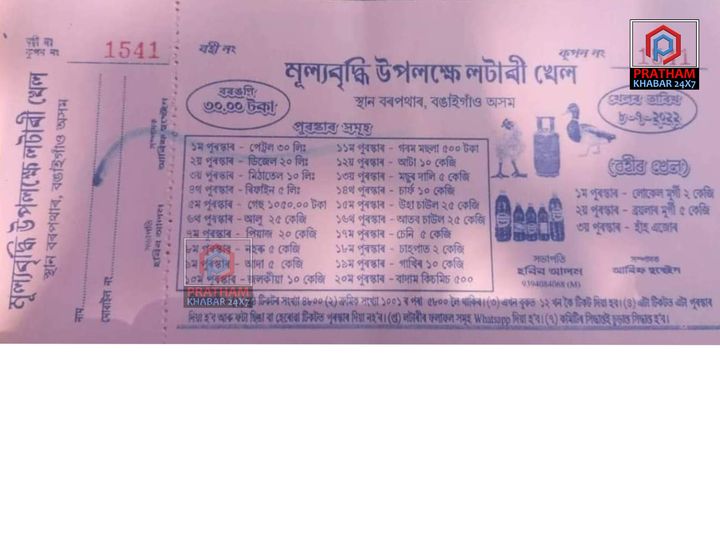 1541
মূল্যবৃদ্ধি উপলক্ষে লটাৰী খেল
স্থান বৰপথাৰ, বঙাইগাঁও অসম
নাম
মোবাইল নং
সভাপতি
হবিন আলম
সম্পাদক
আৰিফ হুছেইন
বহী নং
কুপন নং
মূল্যবৃদ্ধি উপলক্ষে লটাৰী খেল
স্থান বৰপথাৰ, বঙাইগাঁও অসম
বৰঙণি
৩০.০০ টকা
খেলৰ তাৰিখ
৮-৭-২০২২
পুৰস্কাৰ সমূহ
১ম পুৰস্কাৰ - পেট্ৰল ৩০ লিঃ
২য় পুৰস্কাৰ - ডিজেল ২০ লিঃ
৩য় পুৰস্কাৰ - মিঠাতেল ১০ লিঃ
৪ৰ্থ পুৰস্কাৰ - ৰিফাইন ৫ লিঃ
৫ম পুৰস্কাৰ - গেছ ১০৫০.০০ টকা
৬ষ্ঠ পুৰস্কাৰ - আলু ২৫ কেজি
৭ম পুৰস্কাৰ - পিয়াজ ২০ কেজি
৮ম পুৰস্কাৰ - নহৰু ৫ কেজি
৯ম পুৰস্কাৰ - আদা ৫ কেজি
১০ম পুৰস্কাৰ - জলকীয়া ১০ কেজি
১১ম পুৰস্কাৰ - গৰম মছলা ৫০০ টকা
১২ম পুৰস্কাৰ - আটা ১০ কেজি
১৩ম পুৰস্কাৰ - মচুৰ দালি ৫ কেজি
১৪ম পুৰস্কাৰ - চাৰ্ফ ১০ কেজি
১৫ম পুৰস্কাৰ - উহা চাউল ২৫ কেজি
১৬ম পুৰস্কাৰ - আতব চাউল ২৫ কেজি
১৭ম পুৰস্কাৰ - চেনি ৫ কেজি
১৮ম পুৰস্কাৰ - চাহপাত ২ কেজি
১৯ম পুৰস্কাৰ - গাখিৰ ১০ কেজি
২০ম পুৰস্কাৰ - বাদাম কিচমিচ ৫০০
(বহীৰ খেল)
১ম পুৰস্কাৰ - লোকেল মূৰ্গী ২ কেজি
২য় পুৰস্কাৰ - ব্ৰয়লাৰ মূৰ্গী ৫ কেজি
৩য় পুৰস্কাৰ - হাঁহ এজোৰ
সভাপতি
হবিন আলম
9394084068 (M)
সম্পাদক
আৰিফ হুছেইন
টিকটৰ সংখ্যা ৪৮০০ (২) ক্ৰমিক সংখ্যা ১০০১ ৰ পৰা ৫৮০০ লৈ থাকিব। (৩) এখন বুকত ১২ খন কৈ টিকট দিয়া হব। (৪) এটা টিকটত এটা পুৰস্কাৰ
দিয়া হ'ব আৰু ফটা ছিঙা বা হেৰোৱা টিকটত পুৰস্কাৰ দিয়া নহ'ব। (৬) লটাৰীৰ ফলাফল সমূহ Whatsapp দিয়া হ'ব। (৭) কমিটিৰ সিদ্ধান্তই চূড়ান্ত সিদ্ধান্ত হ'ব।
PRATHAM
KHABAR 24X7
PRATHAM
KHABAR 24X7